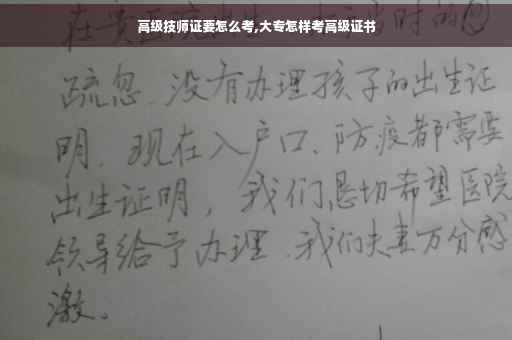 高级技师证要怎么考,大专怎样考高级证书
疏忽.没有办理孩子的出生证
明.现在入户口、防疫都需要
出生证明,我们恳切希望医院
领导给予办理.我们夫妻万分感
激。